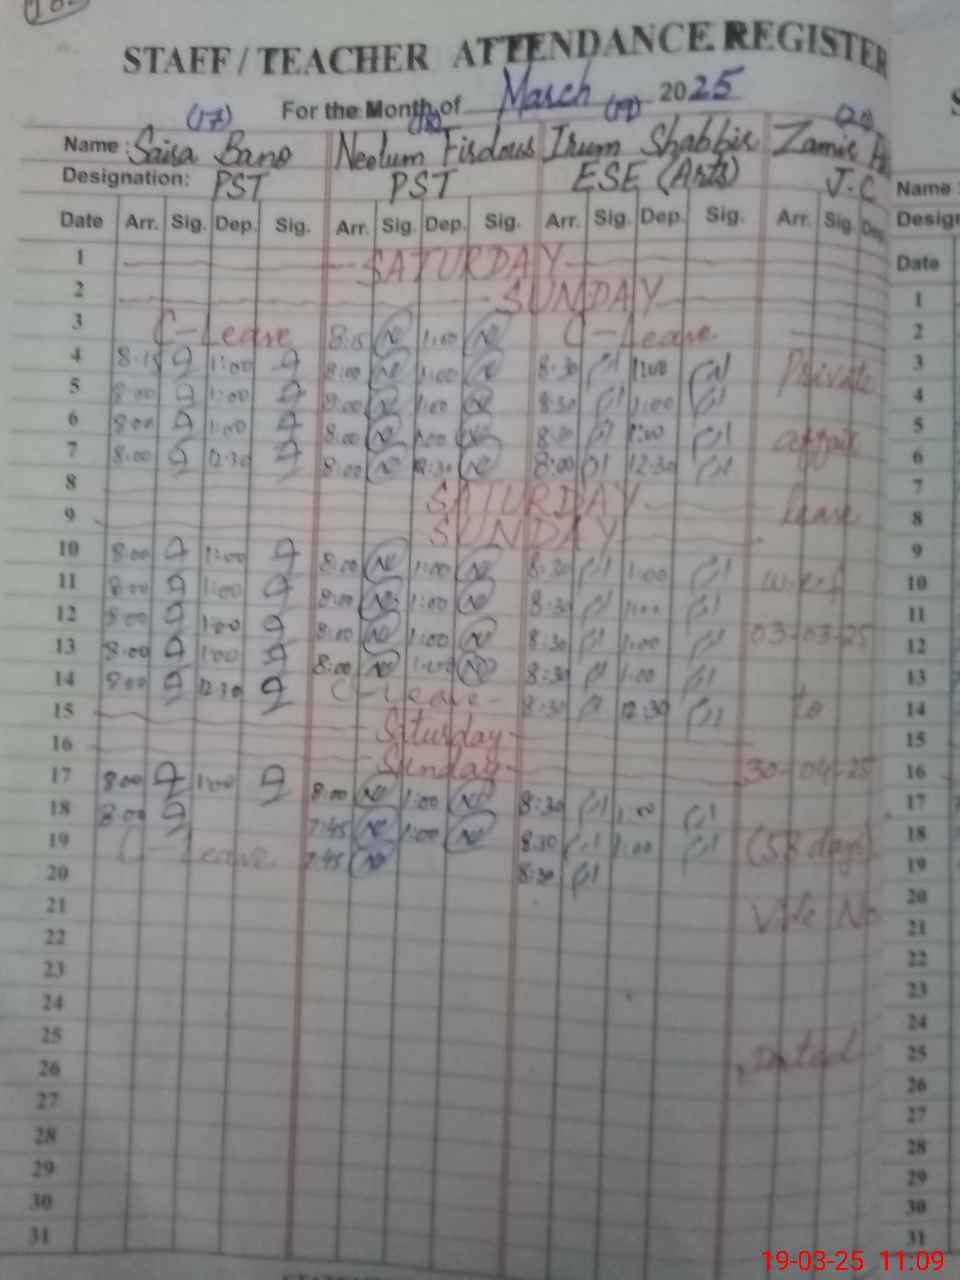 STAFF / TEACHER ATTENDANCE REGISTER
For the Month of March 2025
(17) (18) (19) (20)
Name : Saira Bano Neelum Firdous Irum Shabbir Zamir
Designation: PST PST ESE (Arts) J.C Name
Date Arr. Sig. Dep. Sig. Arr. Sig. Dep. Sig. Arr. Sig. Dep. Sig. Arr. Sig. Dep Date
1 SATURDAY 1
2 SUNDAY 2
3 C-Leave 8:15 1:00 C-Leave 3
4 8:15 1:00 8:00 1:00 8:30 1:00 Private 4
5 8:00 1:00 8:00 1:00 8:30 1:00 5
6 8:00 1:00 8:00 1:00 8:30 1:00 affair 6
7 8:00 12:30 8:00 12:30 8:00 12:30 7
8 SATURDAY leave 8
9 SUNDAY 9
10 8:00 1:00 8:00 1:00 8:30 1:00 w.e.f 10
11 8:00 1:00 8:00 1:00 8:30 1:00 11
12 8:00 1:00 8:00 1:00 8:30 1:00 03-03-25 12
13 8:00 1:00 8:00 1:00 8:30 1:00 13
14 8:00 12:30 C-Leave 8:30 12:30 to 14
15 Saturday 15
16 Sunday 30-04-25 16
17 8:00 1:00 8:00 1:00 8:30 1:00 17
18 8:00 7:45 1:00 8:30 1:00 (58 days) 18
19 C-Leave 7:45 8:30 19
20 20
21 Vide No 21
22 22
23 23
24 24
25 Dated 25
26 26
27 27
28 28
29 29
30 30
31 31
19-03-25 11:09